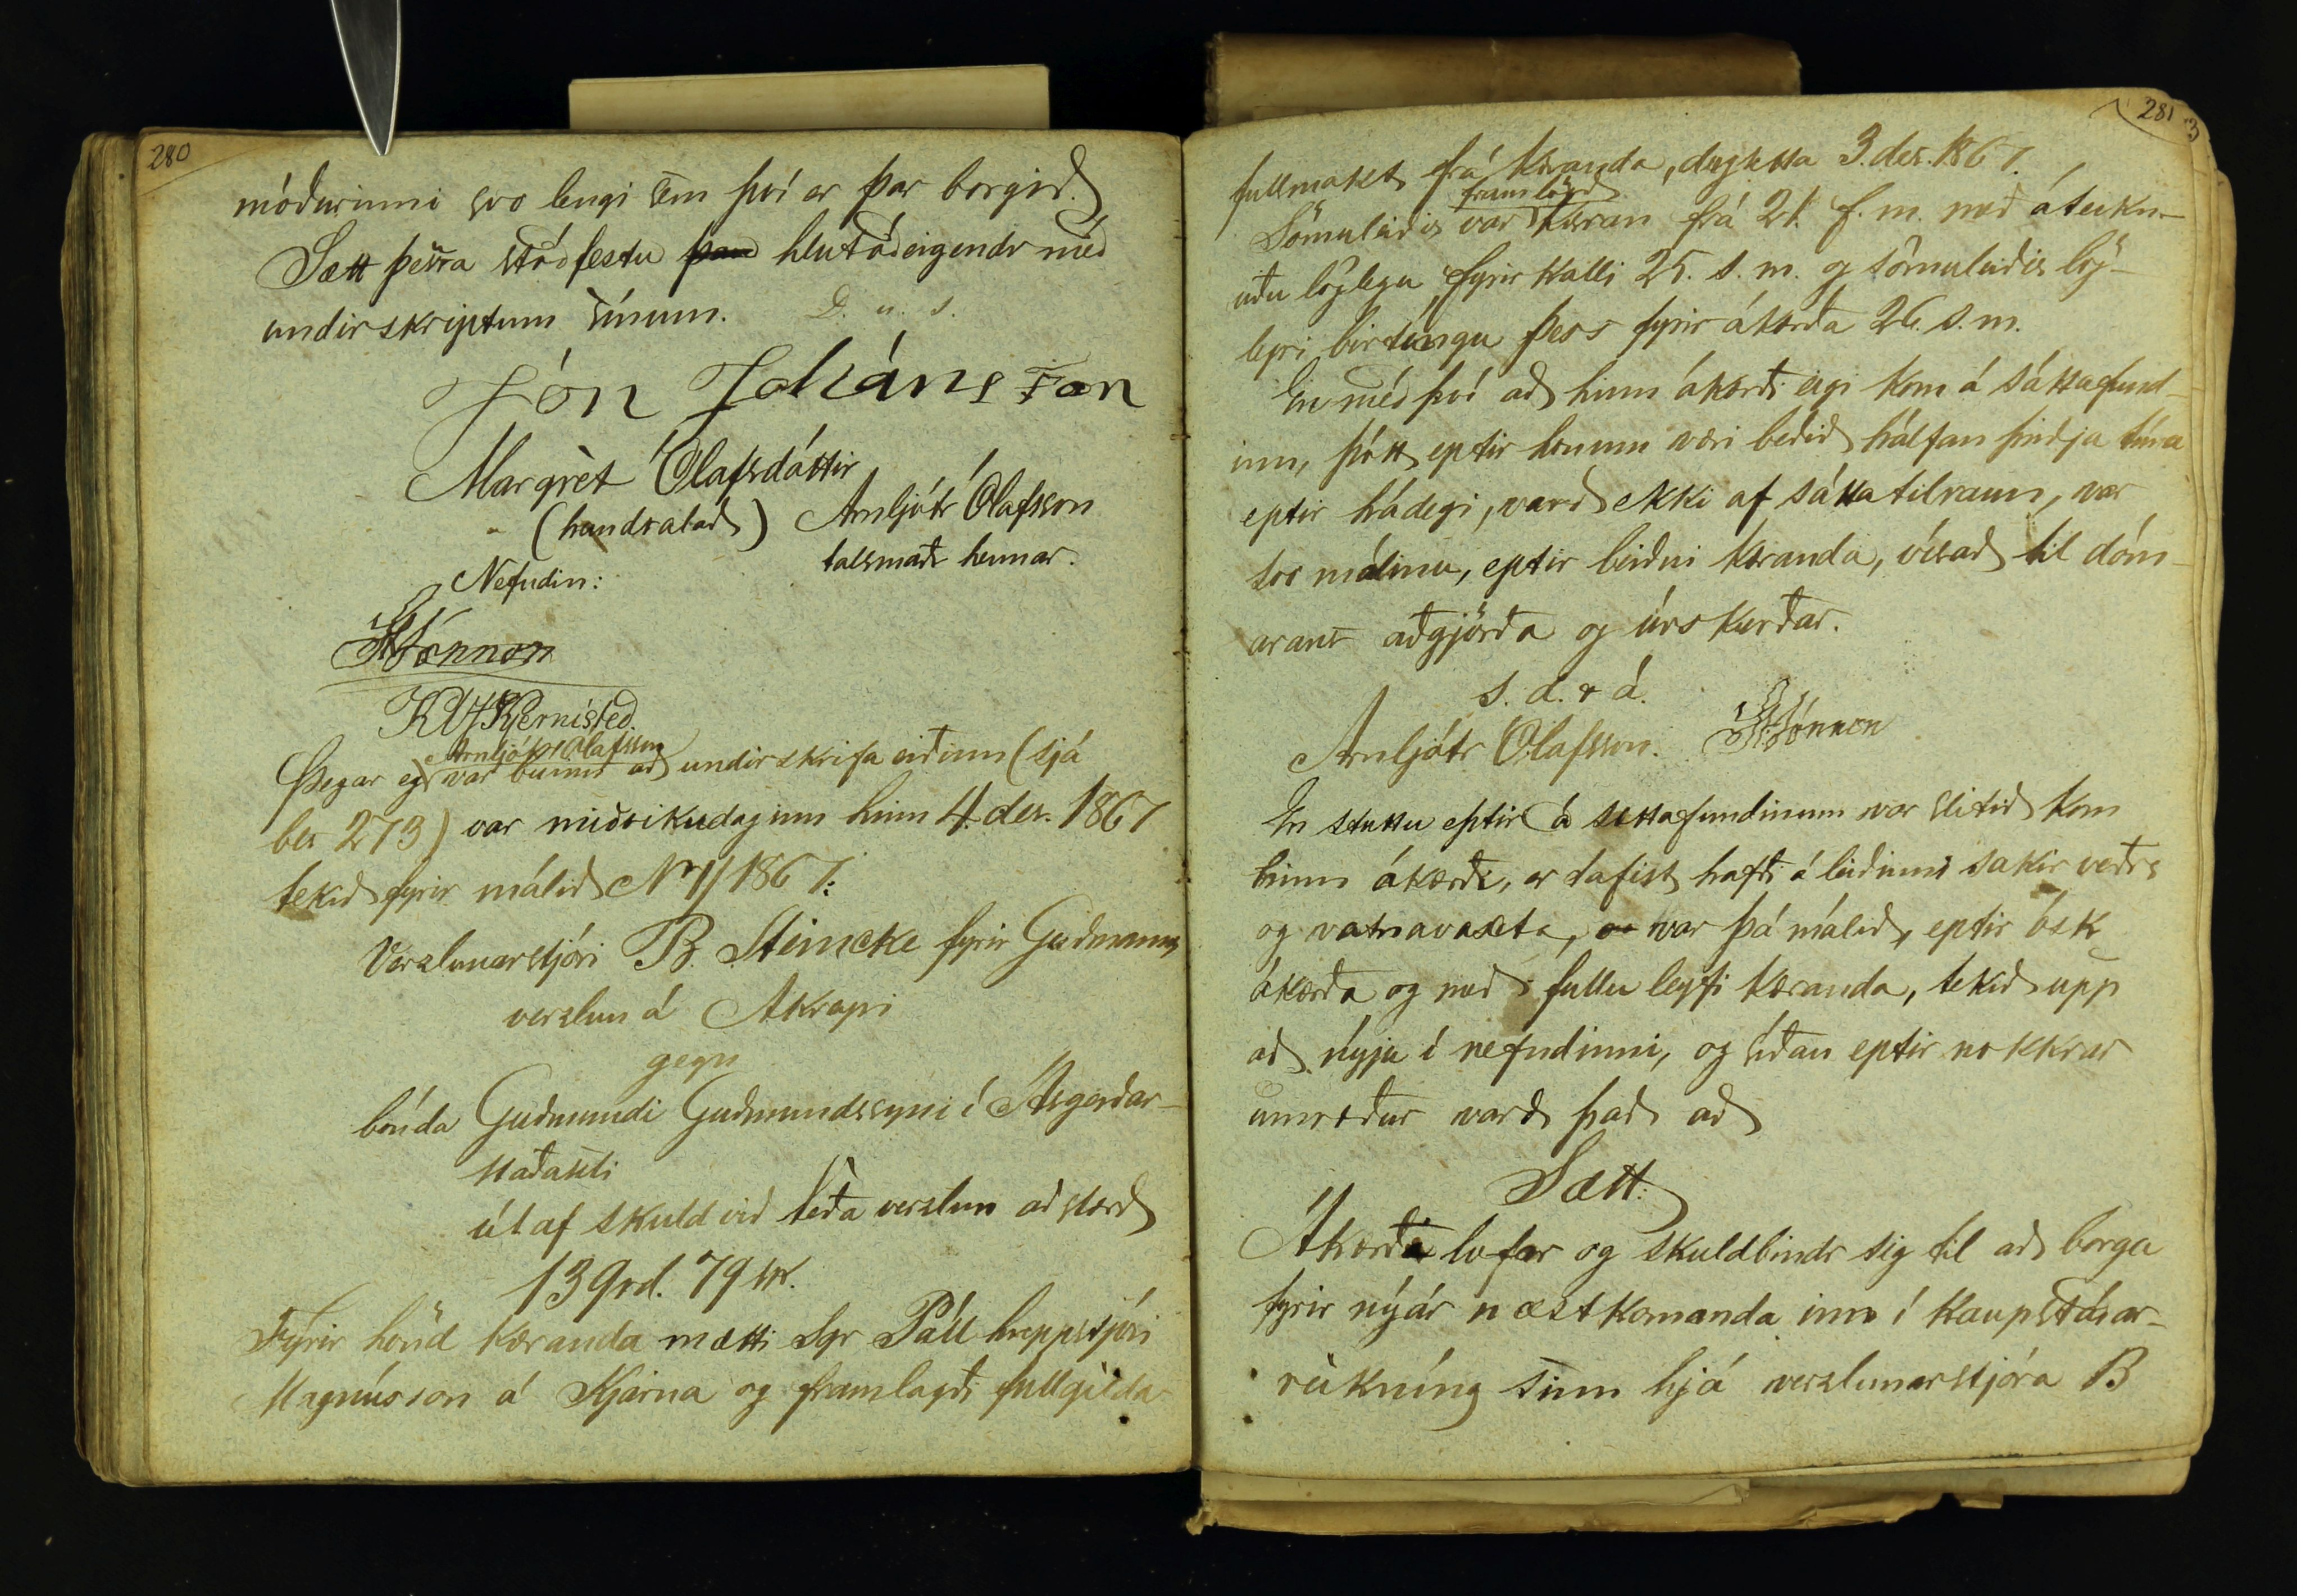 280
móðurinni svo lengi sem því er þar borgið.
Sætt þessa staðfestu hlutaðeigendr með
undirskriptum sínum. D. u. s.
Jón Jóhánsson
Margrèt Ólafsdóttir
(handsalað) Arnljótr Ólafsson
talsmaðr hennar.
Nefndin:
Þegar eg Arnljótr Ólafsson var búinn að undirskrifa eiðinn (sjá
bls 273) var miðvikudaginn hinn 4. des. 1867
tekið fyrir málið No 11/1867:
Verslunarstjóri B. Steincke fyrir Guðmanns
verslun á Akreyri
gegn
bónda Guðmundi Guðmundssyni í Ásgerðar-
staðaseli
útaf skuld við téða verslun að stærð
139 rd. 79 sk.
Fyrir hönd kæranda mætti Sgr Páll hreppstjóri
Magnússon á Kjarna og framlagði fullgilda
281
fullmakt frá kæranda, dagsetta 3. des. 1867.
Sömuleiðis var framlögð kæran frá 21. f. m. með áteikn-
uðu löglegu fyrirkalli 25. s. m. og sömuleiðis lög-
legri birtíngu þess fyrir ákærða 26. s. m.
En með því að hinn ákærði eigi kom á sáttafund-
inn, þótt eptir honum væri beðið hálfan þriðja tíma
eptir hádegi, varð ekki af sáttatilraun, var
svo málinu, eptir beiðni kæranda, vísað til dóm-
arans aðgjörða og úrskurðar.
s. d. & á.
Arnljótr Ólafsson.
En stuttu eptir á settafundinum var slitið kom
hinn ákærði, er tafist hafði á leiðinni sakir veðrs
og vatnavaxta, var þá málið, eptir ósk
ákærða og með fullu leyfi kæranda, tekið upp
að nýju í nefndinni, og síðan eptir nokkrar
umræður varð það að
Sætt:
Ákærði lofar og skuldbindr sig til að borga
fyrir nýár næstkomanda inn í kaupstaðar-
reikníng sinn hjá verslunarstjóra B